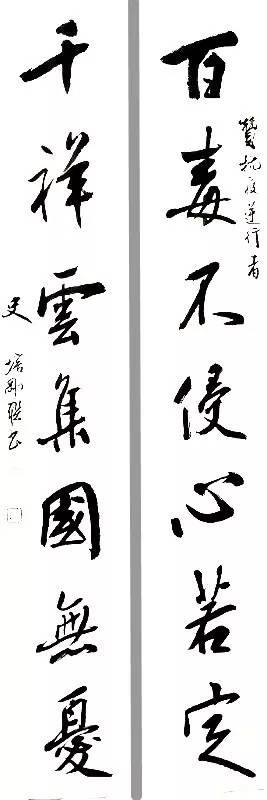 百毒不侵心若定
贊抗疫逆行者
千祥雲集國無憂
史
培剛聯書